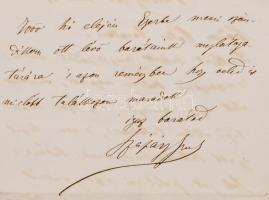 Jövő hó elején Egerbe menni szán-
dékom ott lévő barátaink megláto ga-
tására, s azon reményben hogy veled is
mielőbb találkozom maradok
igaz barátod